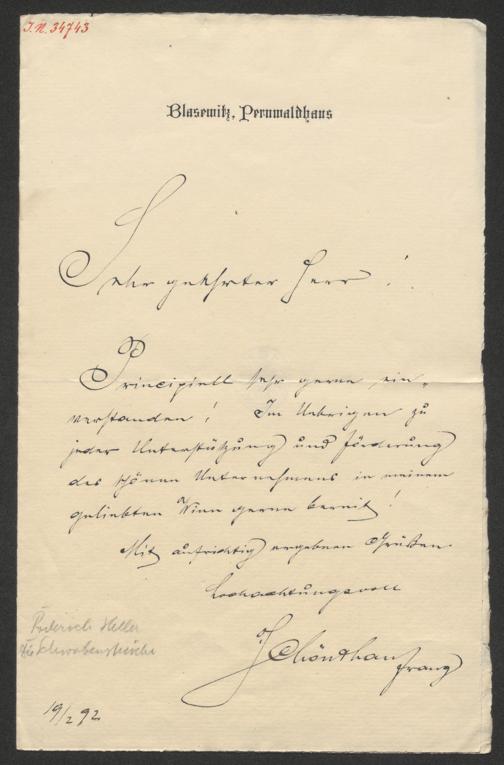 J.N. 34743
Blasewitz, Pernwaldhaus
Sehr geehrter Herr!
Principiell sehr gerne ein-
verstanden! Im Uebrigen zu
jeder Unterstützung und Förderung
des schönen Unternehmens in meinem
geliebten Wien gerne bereit!
Mit aufrichtig ergebenen Grüßen
hochachtungsvoll
Schönthan
Franz
Heller
19/2 92